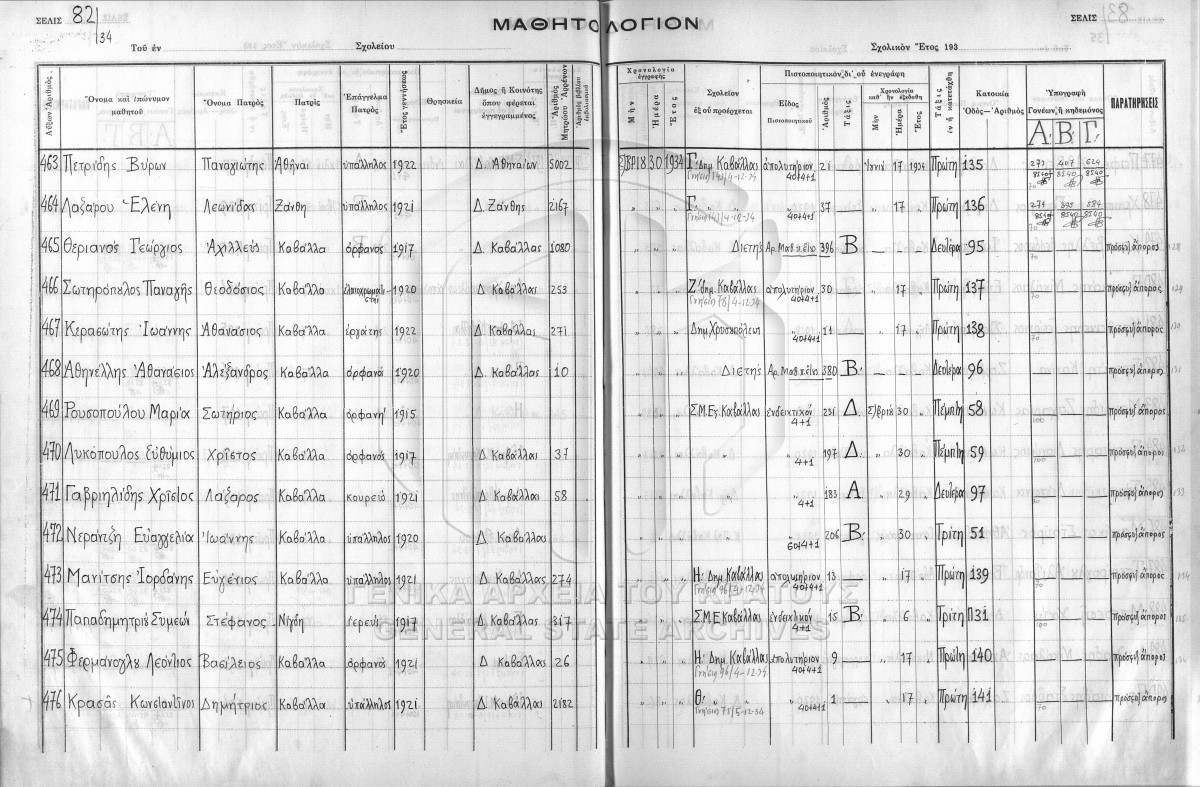 ΣΕΛΙΣ 82
34
ΜΑΘΗΤΟΛΟΓΙΟΝ
ΣΕΛΙΣ 83
35
Τοῦ ἐν Σχολείου Σχολικὸν Ἔτος 193
Αὔξων Ἀριθμὸς
Ὄνομα καὶ ἐπώνυμον μαθητοῦ
Ὄνομα Πατρὸς
Πατρὶς
Ἐπάγγελμα Πατρὸς
Ἔτος γεννήσεως
Θρησκεία
Δῆμος ἢ Κοινότης ὅπου φέρεται ἐγγεγραμμένος
Ἀριθμὸς Μητρώου Ἀρρένων
Χρονολογία ἐγγραφῆς
Μὴν Ἡμέρα Ἔτος
Σχολεῖον ἐξ οὗ προέρχεται
Πιστοποιητικὸν δι' οὗ ἐνεγράφη
Εἶδος Πιστοποιητικοῦ
Ἀριθμὸς
Τάξις
Χρονολογία καθ' ἣν ἐξεδόθη
Μὴν Ἡμέρα Ἔτος
Τάξις ἐν ᾗ κατετάχθη
Κατοικία Ὁδὸς — Ἀριθμὸς
Ὑπογραφὴ Γονέων ἢ κηδεμόνος
Α Β Γ
ΠΑΡΑΤΗΡΗΣΕΙΣ
463 Πετρίδης Βύρων Παναγιώτης Ἀθῆναι ὑπάλληλος 1922 Δ. Ἀθηναίων 5002 30 1934 Γ' Δημ. Καβάλλας ἀπολυτήριον 21 — 17 1934 Πρώτη 135 273 407 624
40+4+1 8540 8540 8540
464 Λαζάρου Ἑλένη Λεωνίδας Ξάνθη ὑπάλληλος 1921 Δ. Ξάνθης 2167 „ „ „ Γ' „ „ 37 — „ 17 „ Πρώτη 136 271 395 584
40+4+1 8540 8540 8540
465 Θεριανὸς Γεώργιος Ἀχιλλεὺς Καβάλλα ὀρφανὸς 1917 Δ Καβάλλας 1080 „ „ „ Διετὴς 396 Β — — — Δευτέρα 95 — — — πρόσφυξ ἄπορος
466 Σωτηρόπυλος Παναγῆς Θεοδόσιος Καβάλλα 1920 Δ Καβάλλας 253 „ „ „ Ζ' Δημ. Καβάλλας ἀπολυτήριον 30 — „ 17 „ Πρώτη 137 — — — πρόσφυξ ἄπορος
40+4+1
467 Κερασώτης Ἰωάννης Ἀθανάσιος Καβάλλα ἐργάτης 1922 Δ Καβάλλας 271 „ „ „ Δημ. Χρυσουπόλεως „ 11 — „ 17 „ Πρώτη 138 — — — πρόσφυξ ἄπορος
40+4+1
468 Ἀθηνέλλης Ἀθανάσιος Ἀλέξανδρος Καβάλλα ὀρφανὸς 1920 Δ. Καβάλλας 10 „ „ „ Διετὴς 380 Β — — — Δευτέρα 96 — — — πρόσφυξ ἄπορος
469 Ρουσοπούλου Μαρία Σωτήριος Καβάλλα ὀρφανὴ 1915 „ „ „ Καβάλλας ἐνδεικτικόν 231 Δ 30 „ Πέμπτη 58 — — — πρόσφυξ ἄπορος
4+1
470 Λυκόπουλος Εὐθύμιος Χρῖστος Καβάλλα ὀρφανὸς 1917 Δ Καβάλλας 37 „ „ „ „ 197 Δ „ 30 „ Πέμπτη 59 — — — πρόσφυξ ἄπορος
4+1
471 Γαβριηλίδης Χρῖστος Λάζαρος Καβάλλα κουρεὺς 1921 Δ Καβάλλας 58 „ „ „ „ 183 Α „ 29 „ Δευτέρα 97 — — — πρόσφυξ ἄπορος
4+1
472 Νεράντζη Εὐαγγελία Ἰωάννης Καβάλλα ὑπάλληλος 1920 Δ Καβάλλας „ „ „ „ 206 Β „ 30 Τρίτη 51 — — — πρόσφυξ ἄπορος
473 Μανίτσης Ἰορδάνης Εὐγένιος Καβάλλα ὑπάλληλος 1921 Δ Καβάλλας 274 „ „ „ Η' Δημ. Καβάλλας ἀπολυτήριον 13 — „ 17 „ Πρώτη 139 — — — πρόσφυξ ἄπορος
40+4+1
ΓΕΝΙΚΑ ΑΡΧΕΙΑ ΤΟΥ ΚΡΑΤΟΥΣ
GENERAL STATE ARCHIVES
474 Παπαδημητρίου Συμεών Στέφανος Νίγδη ἱερεὺς 1917 Δ Καβάλλας 317 „ „ „ Καβάλλας ἐνδεικτικόν 15 Β „ 6 „ Τρίτη Π31 — — — πρόσφυξ ἄπορος
4+1
475 Φερμάνογλου Λεόντιος Βασίλειος Καβάλλα ὀρφανὸς 1921 Δ Καβάλλας 26 „ „ „ Η' Δημ. Καβάλλας ἀπολυτήριον 9 — „ 17 „ Πρώτη 140 — — — πρόσφυξ ἄπορος
40+4+1
476 Κρασᾶς Κωνσταντῖνος Δημήτριος Καβάλλα ὑπάλληλος 1921 Δ Καβάλλας 2182 „ „ „ Θ' „ „ „ 1 — 17 „ Πρώτη 141 — — — πρόσφυξ ἄπορος
40+4+1